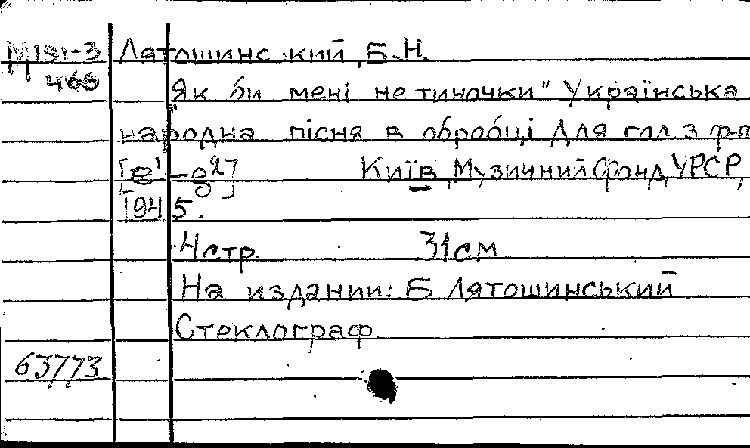 М 191-3
466
Лятошинский, Б.Н.
Як би мені не тиночки" Українська
народна пісня в обробці для гол. з ф-п
[e¹-g²] Київ, Музичний Фонд УРСР,
1945.
4 стр. 31 см
На издании: Б. Лятошинський
Стеклограф
63773